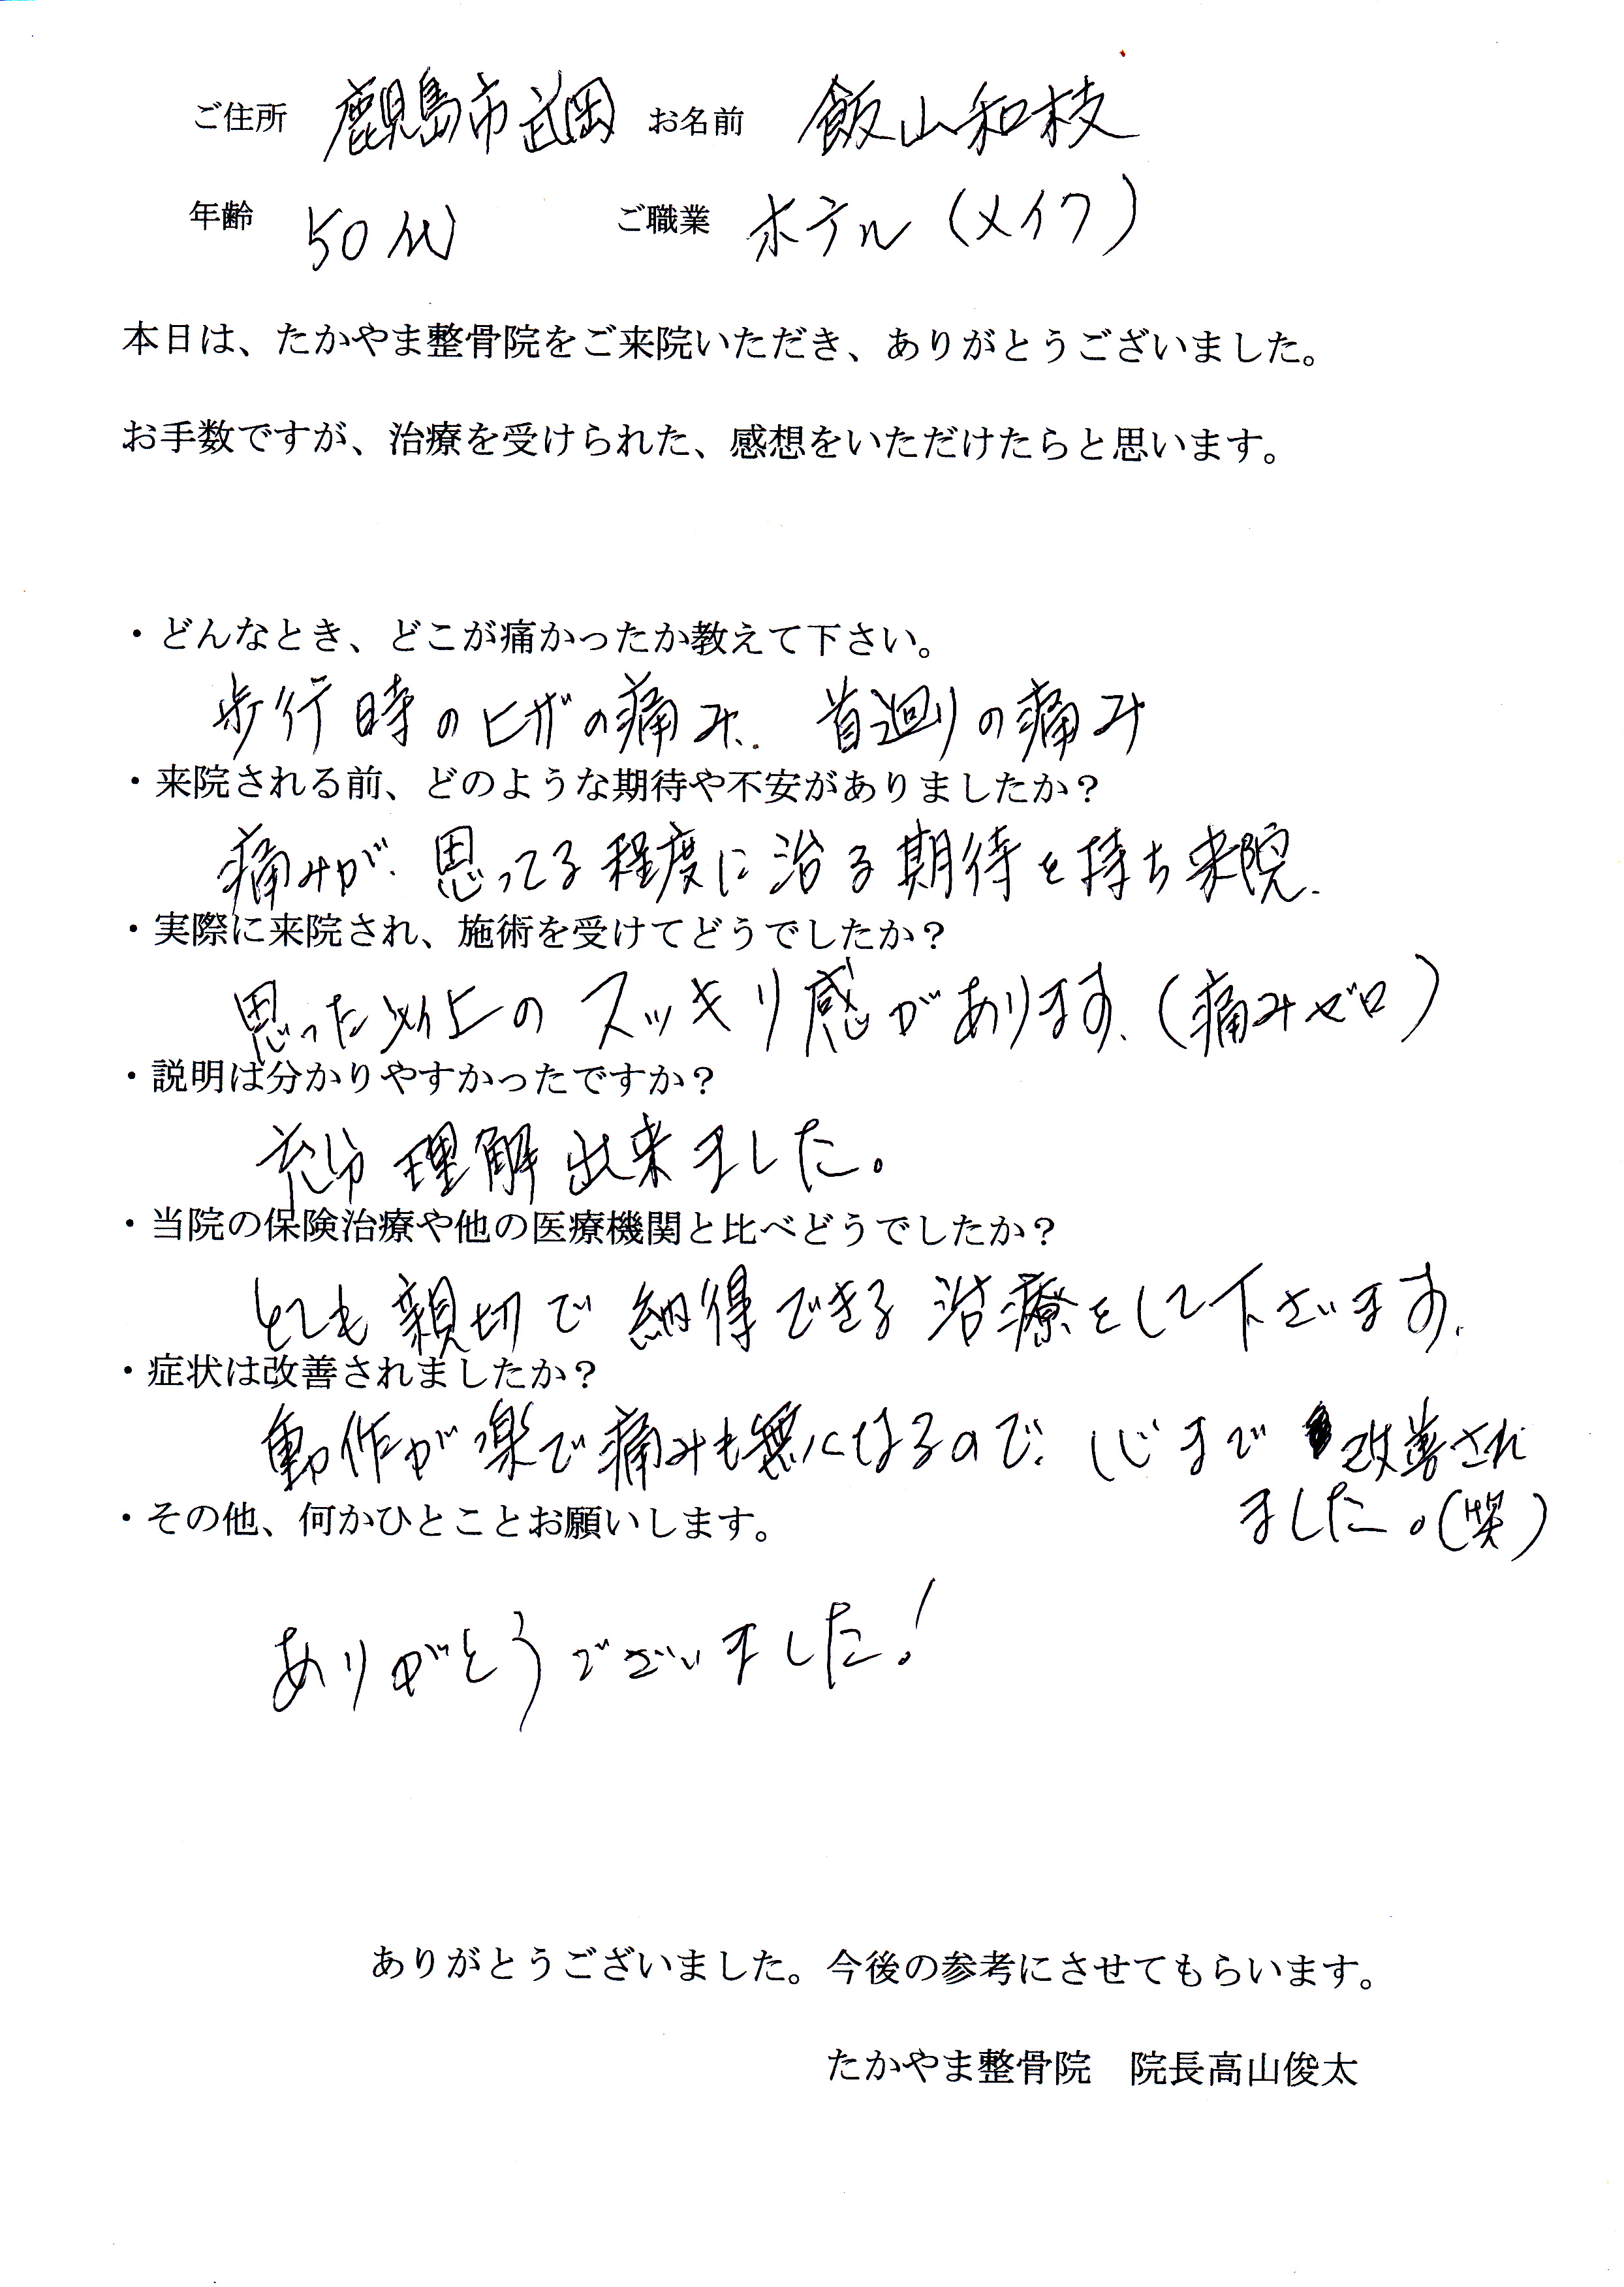 ご住所 鹿児島市武岡 お名前 飯山和枝
年齢 50代 ご職業 ホテル（メイク）
本日は、たかやま整骨院をご来院いただき、ありがとうございました。
お手数ですが、治療を受けられた、感想をいただけたらと思います。
・どんなとき、どこが痛かったか教えて下さい。
歩行時のヒザの痛み、首廻りの痛み
・来院される前、どのような期待や不安がありましたか？
痛みが、思ってる程度に治る期待を持ち来院.
・実際に来院され、施術を受けてどうでしたか？
思った以上のスッキリ感があります.（痛みゼロ）
・説明は分かりやすかったですか？
充分理解出来ました。
・当院の保険治療や他の医療機関と比べどうでしたか？
とても親切で納得できる治療をして下さいます.
・症状は改善されましたか？
動作が楽で痛みも無くなるので、心まで改善され
ました。（笑）
・その他、何かひとことお願いします。
ありがとうございました！
ありがとうございました。今後の参考にさせてもらいます。
たかやま整骨院 院長高山俊太